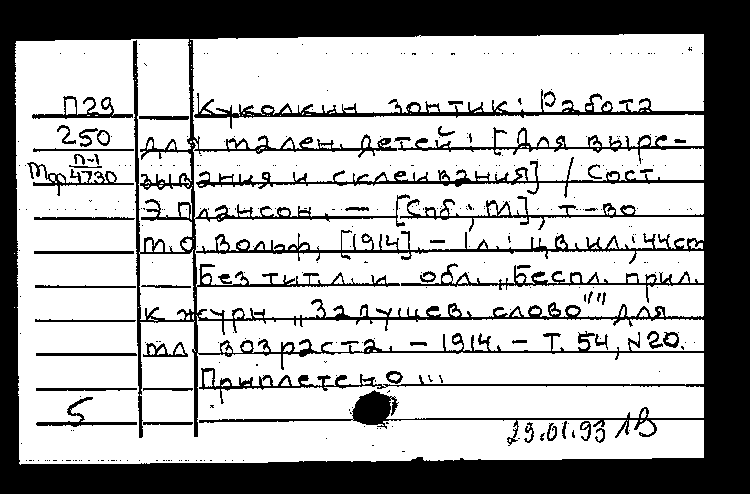 П29 Куколкин зонтик: Работа
250 для мален. детей: [Для выре-
Мф П-1/4730 зывания и склеивания] / Сост.
Э. Плансон. — [Спб.; М.], т-во
М.О. Вольф, [1914]. — 1 л.: цв. ил.; 44 см
Без тит. л. и обл. „Беспл. прил.
к журн. „Задушев. слово"" для
мл. возраста. — 1914. — Т. 54, N 20.
Приплетено...
5
29.01.93